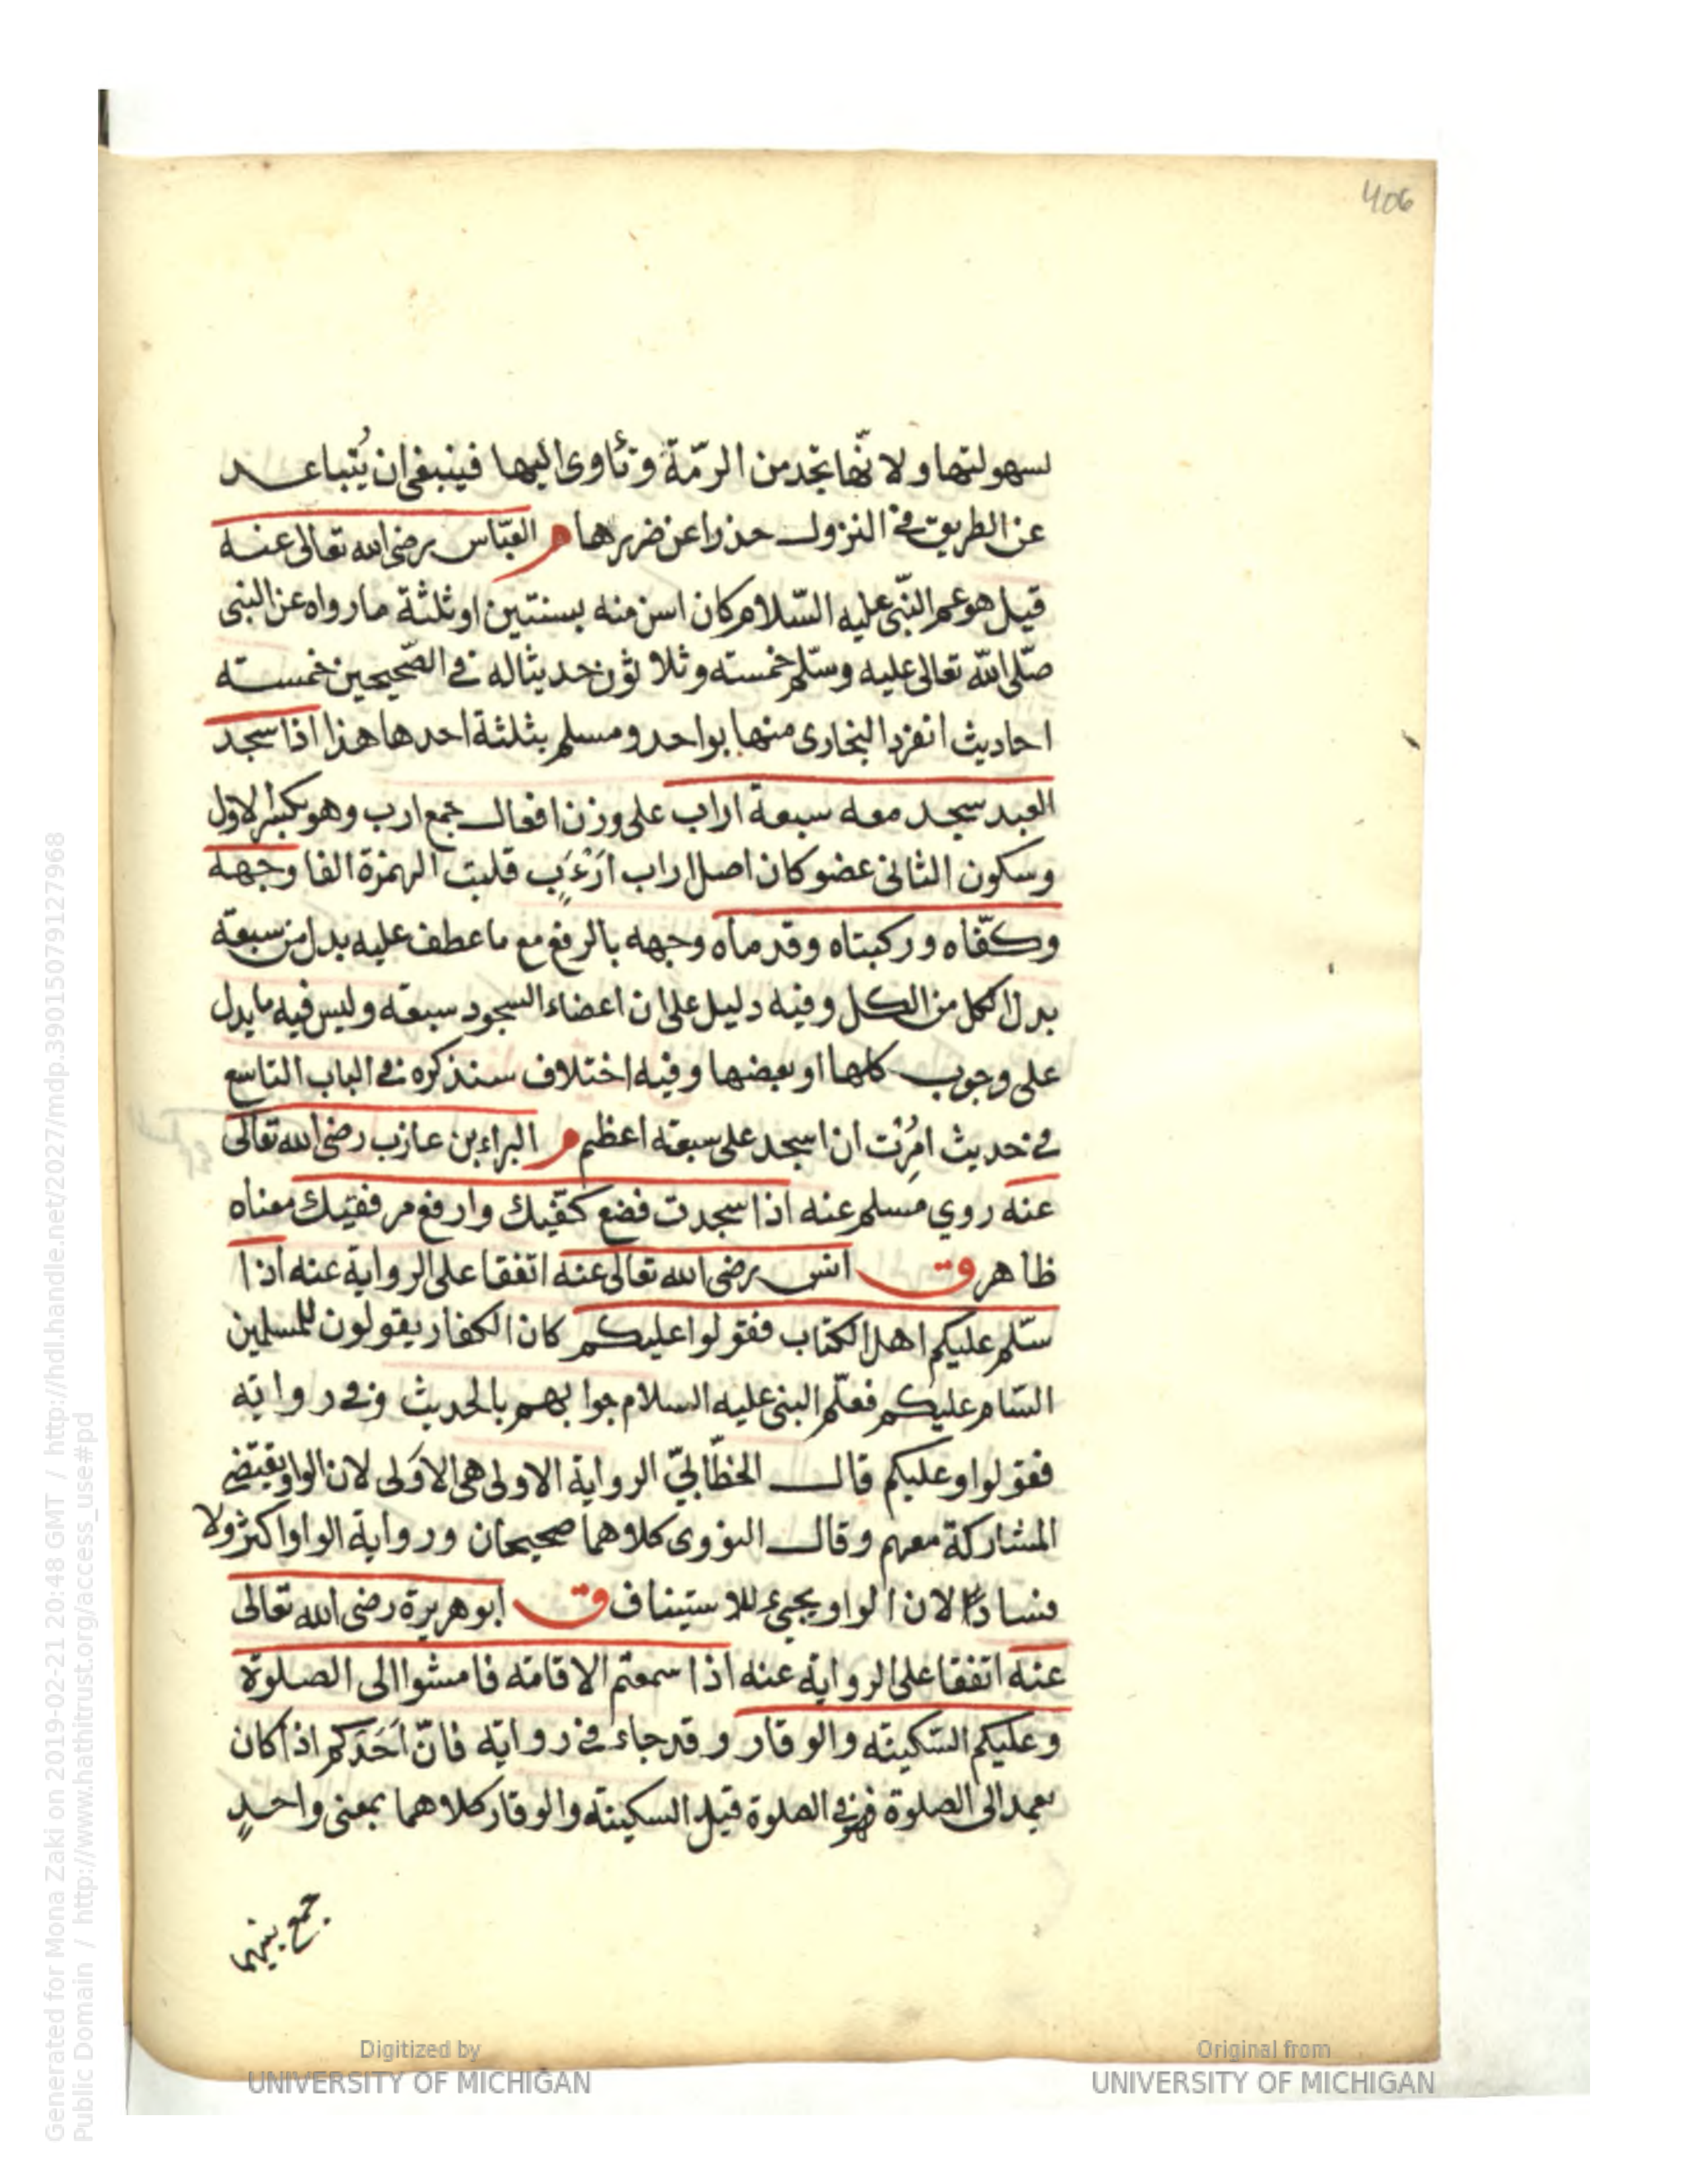 406
لسهولتها ولانّها تجد من الرمّة وتأوى اليها فينبغى ان يُتباعد
عن الطريق فى النزول حذرا عن ضررها م العبّاس رضى الله تعالى عنه
قيل هو عم النّبى عليه السّلام كان اسن منه بسنتين او ثلثة ما رواه عن النبى
صلّى الله تعالى عليه وسلّم خمسته وثلاثون حديثا له فى الصّحيحين خمسته
احاديث انفرد البخارى منها بواحد ومسلم بثلثة احدها هذا اذا سجد
العبد سجد معه سبعة اراب على وزن افعال جمع ارب وهو بكسر الاول
وسكون الثانى عضو كان اصل اراب اَرْءَب قلبت الهمزة الفا وجهه
وكفّاه وركبتاه وقدماه وجهه بالرفع مع ما عطف عليه بدل من سبعة
بدل الكل من الكل وفيه دليل على ان اعضاء السجود سبعته وليس فيه ما يدل
على وجوب كلها او بعضها وفيه اختلاف سنذكره فى الباب التاسع
فى حديث امُرْت ان اسجد على سبعته اعظم م البراء بن عازب رضى الله تعالى
عنه روي مسلم عنه اذا سجدت فضع كفّيك وارفع مرفقيك معناه
ظاهر ق انس رضى الله تعالى عنه اتفقا على الرواية عنه اذا
سلّم عليكم اهل الكتاب فقولوا عليكم كان الكفار يقولون للمسلمين
السّام عليكم فعلّم النبى عليه السلام جوابهم بالحديث وفى رواية
فقولوا وعليكم قال الخطّابيّ الرواية الاولى هى الاَولى لان الواو يقتضى
المشاركة معهم وقال النووى كلاهما صحيحان ورواية الواو اكثر ولا
فسادًا لان الواو يجيء للاستيناف ق ابو هريرة رضى الله تعالى
عنه اتفقا على الرواية عنه اذا سمعتم الاقامة فامشوا الى الصلوة
وعليكم السّكينته والوقار وقد جاء فى رواية فانّ اَحَدَكم اذا كان
يعمد الى الصلوة فهو فى الصلوة قيل السكينته والوقار كلاهما بمعنى واحدٍ
جمع بينهما
Digitized by
UNIVERSITY OF MICHIGAN
Original from
UNIVERSITY OF MICHIGAN
Generated for Mona Zaki on 2019-02-21 20:48 GMT / http://hdl.handle.net/2027/mdp.39015079127968
Public Domain / http://www.hathitrust.org/access_use#pd